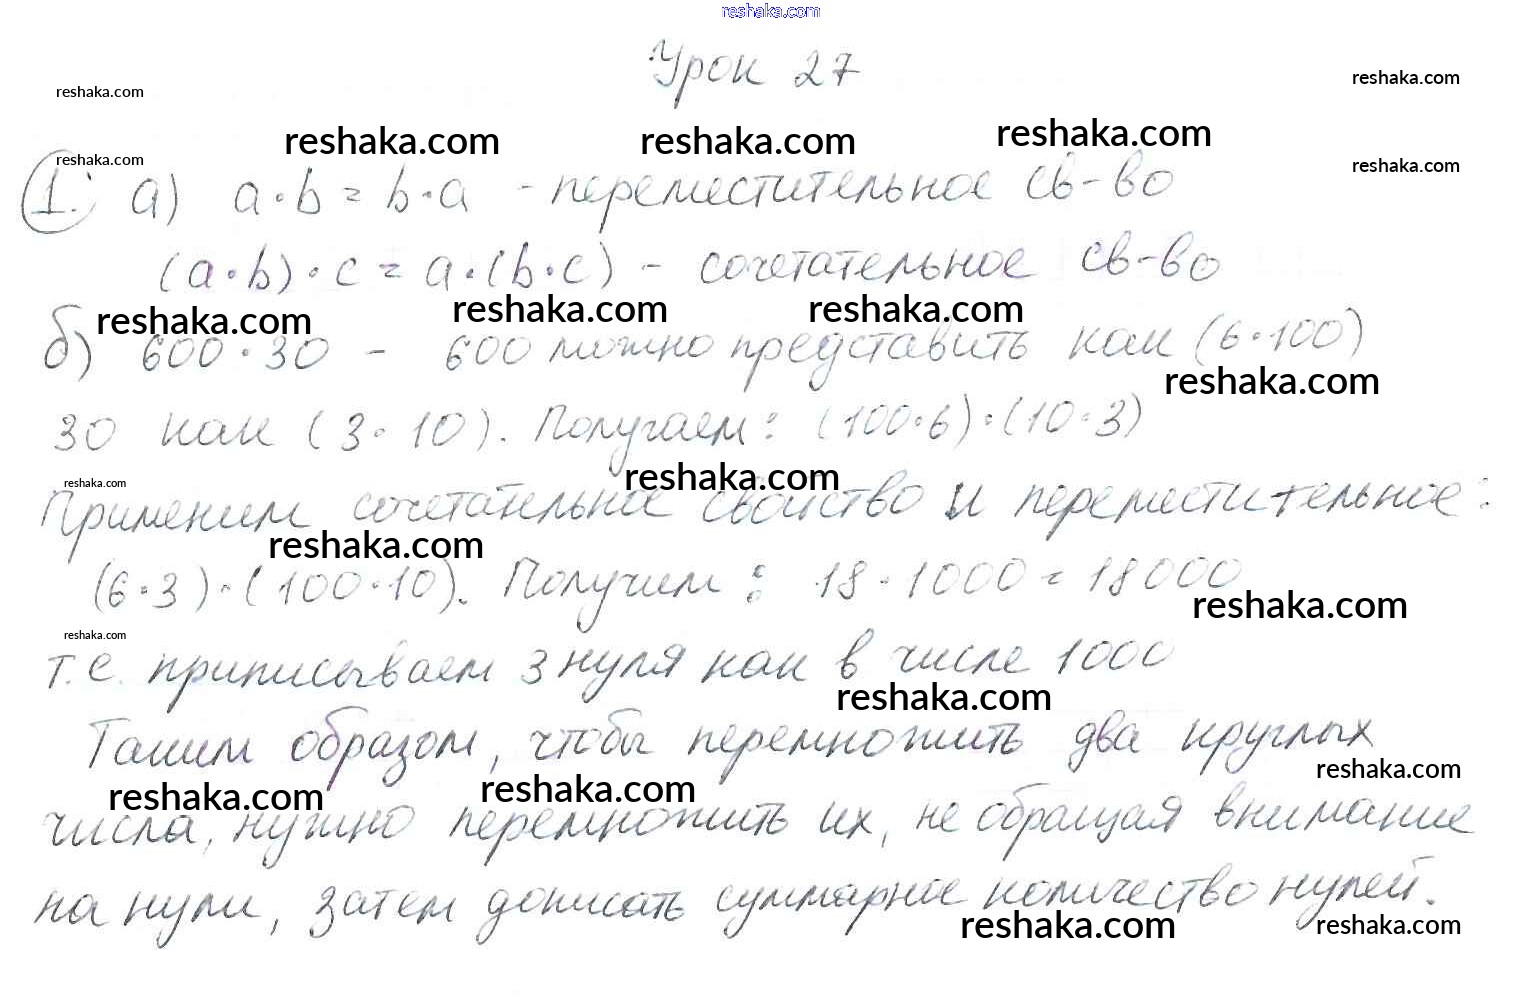 reshaka.com
Урок 27
reshaka.com
reshaka.com
reshaka.com reshaka.com reshaka.com
reshaka.com
reshaka.com
1. а) a·b = b·a - переместительное св-во
(a·b)·c = a·(b·c) - сочетательное св-во
reshaka.com reshaka.com reshaka.com
б) 600·30 - 600 можно представить как (6·100)
reshaka.com
30 как (3·10). Получаем: (100·6)·(10·3)
reshaka.com
reshaka.com
Применим сочетательное свойство и переместительное:
reshaka.com
(6·3)·(100·10). Получим: 18·1000 = 18000
reshaka.com
reshaka.com
т.е. приписываем 3 нуля как в числе 1000
reshaka.com
Таким образом, чтобы перемножить два круглых
reshaka.com
reshaka.com reshaka.com
числа, нужно перемножить их, не обращая внимание
на нули, затем дописать суммарное количество нулей.
reshaka.com reshaka.com